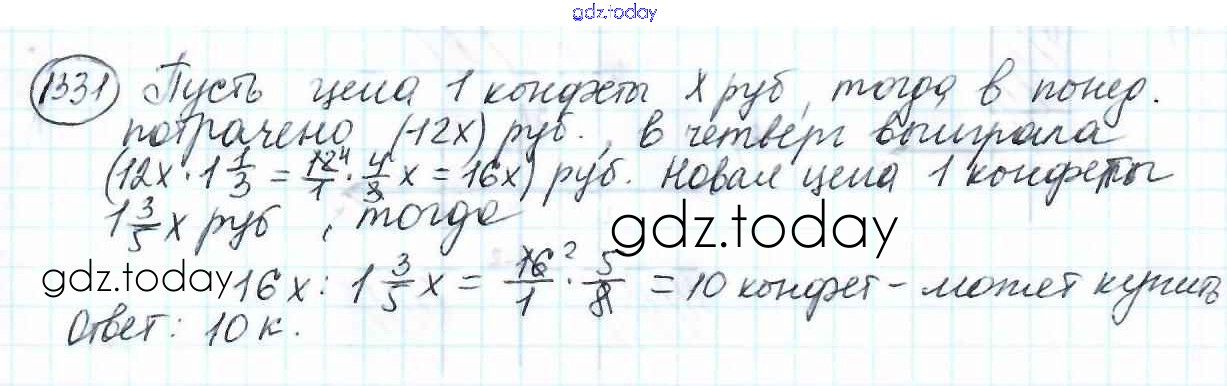 gdz.today
1331 Пусть цена 1 конфеты x руб, тогда в понед.
потрачено (12x) руб., в четверг выиграла
(12x · 1 1/3 = 12/1 · 4/3 x = 16x) руб. Новая цена 1 конфеты
1 3/5 x руб, тогда
gdz.today
gdz.today 16x : 1 3/5 x = 16/1 2 · 5/8 = 10 конфет - может купить
Ответ: 10 к.